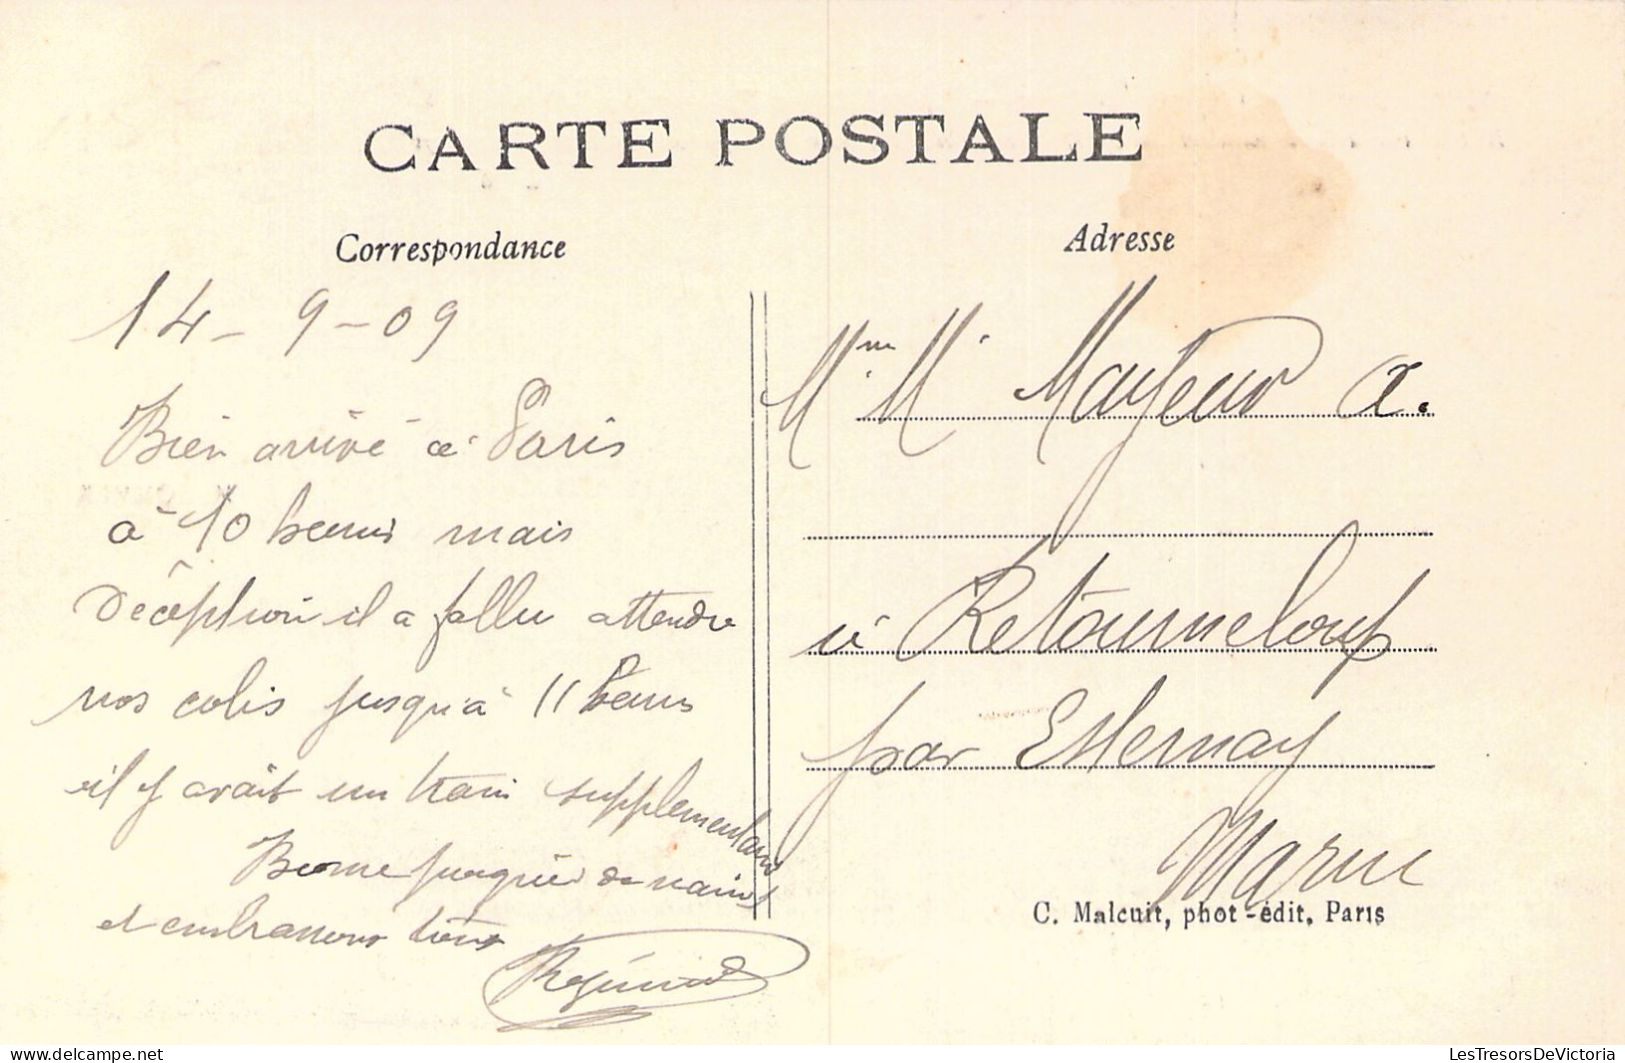 CARTE POSTALE
Correspondance
Adresse
14-9-09
Bien arrivé à Paris
à 10 heures mais
déception il a fallu attendre
nos colis jusqu'à 11 heures
il y avait un train supplémentaire
Bonne
et embrassons tous
Mme M. Mayeur
à Retourneloup
par Esternay
Marne
C. Malcuit, phot-édit, Paris
LesTresorsDeVictoria